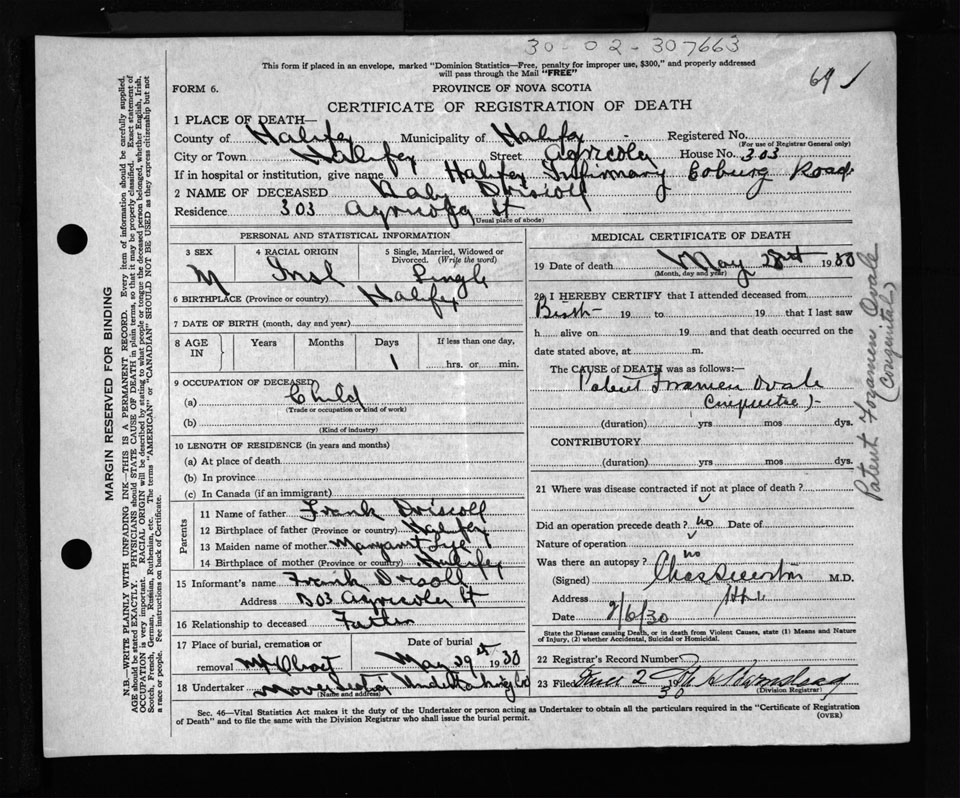 30-02-307663
This form if placed in an envelope, marked "Dominion Statistics—Free, penalty for improper use, $300," and properly addressed
will pass through the Mail "FREE"
FORM 6. PROVINCE OF NOVA SCOTIA
CERTIFICATE OF REGISTRATION OF DEATH
1 PLACE OF DEATH—
County of Halifax Municipality of Halifax Registered No.
(For use of Registrar General only)
City or Town Halifax Street Agricola House No. 303
If in hospital or institution, give name Halifax Infirmary Coburg Road
2 NAME OF DECEASED Baby Driscoll
Residence 303 Agricola St
(Usual place of abode)
PERSONAL AND STATISTICAL INFORMATION
3 SEX 4 RACIAL ORIGIN 5 Single, Married, Widowed or
Divorced. (Write the word)
M Single
6 BIRTHPLACE (Province or country) Halifax
7 DATE OF BIRTH (month, day and year)
8 AGE IN Years Months Days If less than one day,
1 hrs. or min.
9 OCCUPATION OF DECEASED
(a) Child
(Trade or occupation or kind of work)
(b)
(Kind of industry)
10 LENGTH OF RESIDENCE (in years and months)
(a) At place of death
(b) In province
(c) In Canada (if an immigrant)
Parents
11 Name of father Frank Driscoll
12 Birthplace of father (Province or country) Halifax
13 Maiden name of mother Margaret
14 Birthplace of mother (Province or country) Halifax
15 Informant's name Frank Driscoll
Address 303 Agricola St
16 Relationship to deceased Father
17 Place of burial, cremation or Date of burial
removal Mt Olivet May 29th 1930
18 Undertaker Nova Scotia Undertaking Co
(Name and address)
MEDICAL CERTIFICATE OF DEATH
19 Date of death May 28th 1930
(Month, day and year)
20 I HEREBY CERTIFY that I attended deceased from
Birth 19 to 19 that I last saw
h alive on 19 and that death occurred on the
date stated above, at m.
The CAUSE of DEATH was as follows:—
Patent Foramen Ovale
(duration) yrs mos dys.
CONTRIBUTORY
(duration) yrs mos dys.
21 Where was disease contracted if not at place of death?
Did an operation precede death? no Date of
Nature of operation
Was there an autopsy? no
(Signed) M.D.
Address
Date 2/6/30
State the Disease causing Death, or in death from Violent Causes, state (1) Means and Nature
of Injury, (2) whether Accidental, Suicidal or Homicidal.
22 Registrar's Record Number
23 Filed June 2 30
(Division Registrar)
Sec. 46—Vital Statistics Act makes it the duty of the Undertaker or person acting as Undertaker to obtain all the particulars required in the "Certificate of Registration
of Death" and to file the same with the Division Registrar who shall issue the burial permit.
(OVER)
Patent Foramen Ovale
(Congenital)
MARGIN RESERVED FOR BINDING
N.B.—WRITE PLAINLY WITH UNFADING INK—THIS IS A PERMANENT RECORD. Every item of information should be carefully supplied.
AGE should be stated EXACTLY. PHYSICIANS should STATE CAUSE OF DEATH in plain terms, so that it may be properly classified. Exact statement of
OCCUPATION is very important. RACIAL ORIGIN will be described by stating to what people or tongue the deceased person belonged, whether English, Irish,
Scotch, French, German, Russian, Ruthenian, etc. The terms "AMERICAN" or "CANADIAN" SHOULD NOT BE USED as they express citizenship but not
a race or people. See instructions on back of Certificate.